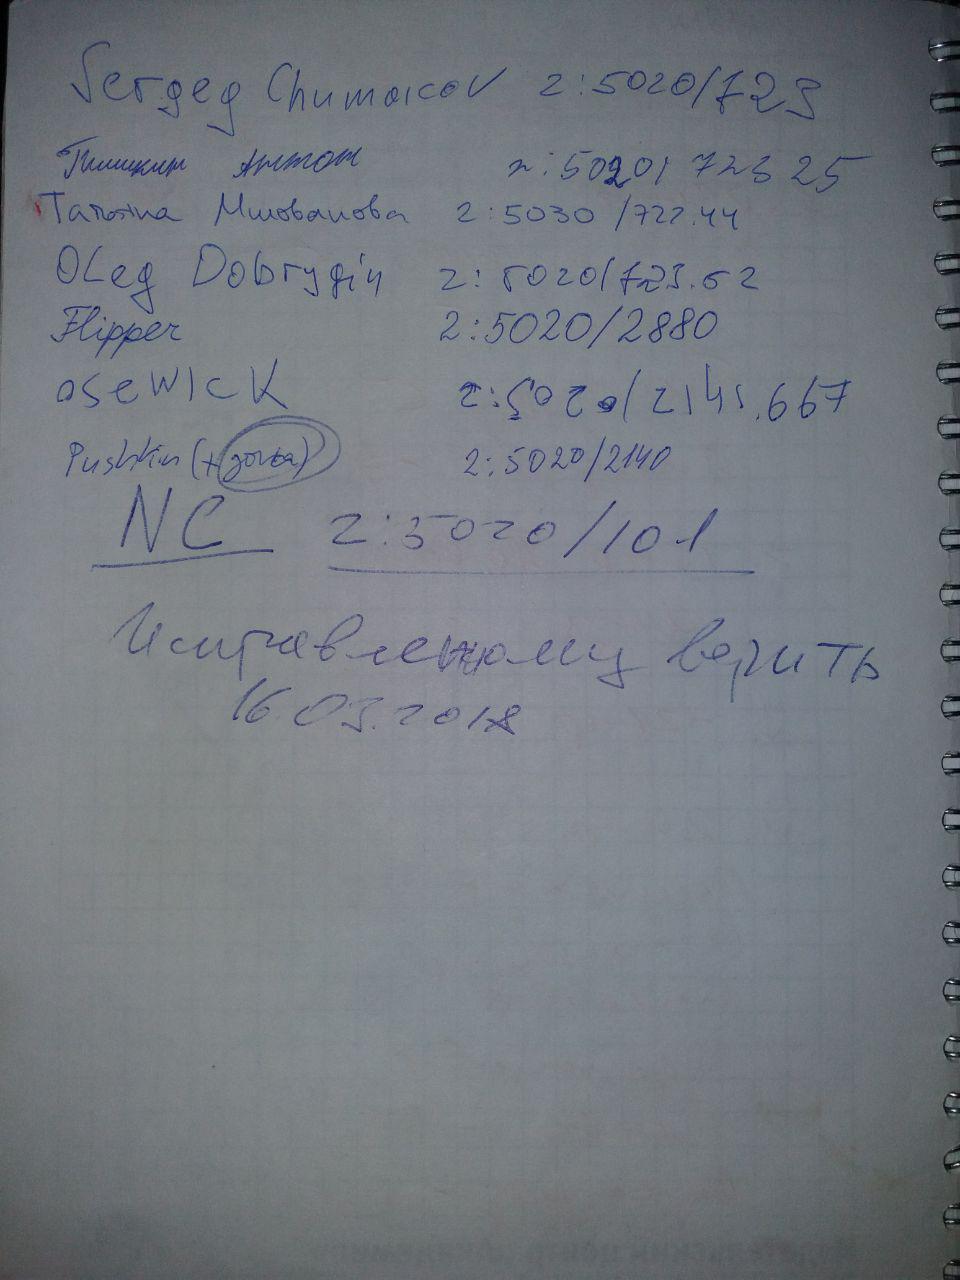 Sergey Chumakov 2:5020/723
Антон 2:5020/723 25
Татьяна Милованова 2:5030/722.44
OLeg Dobrygin 2:5020/723.62
Flipper 2:5020/2880
oseWIcK 2:5020/2141.667
Pushkin (+ 2:5020/2140
NC 2:5020/101
Исправленному верить
16.03.2018